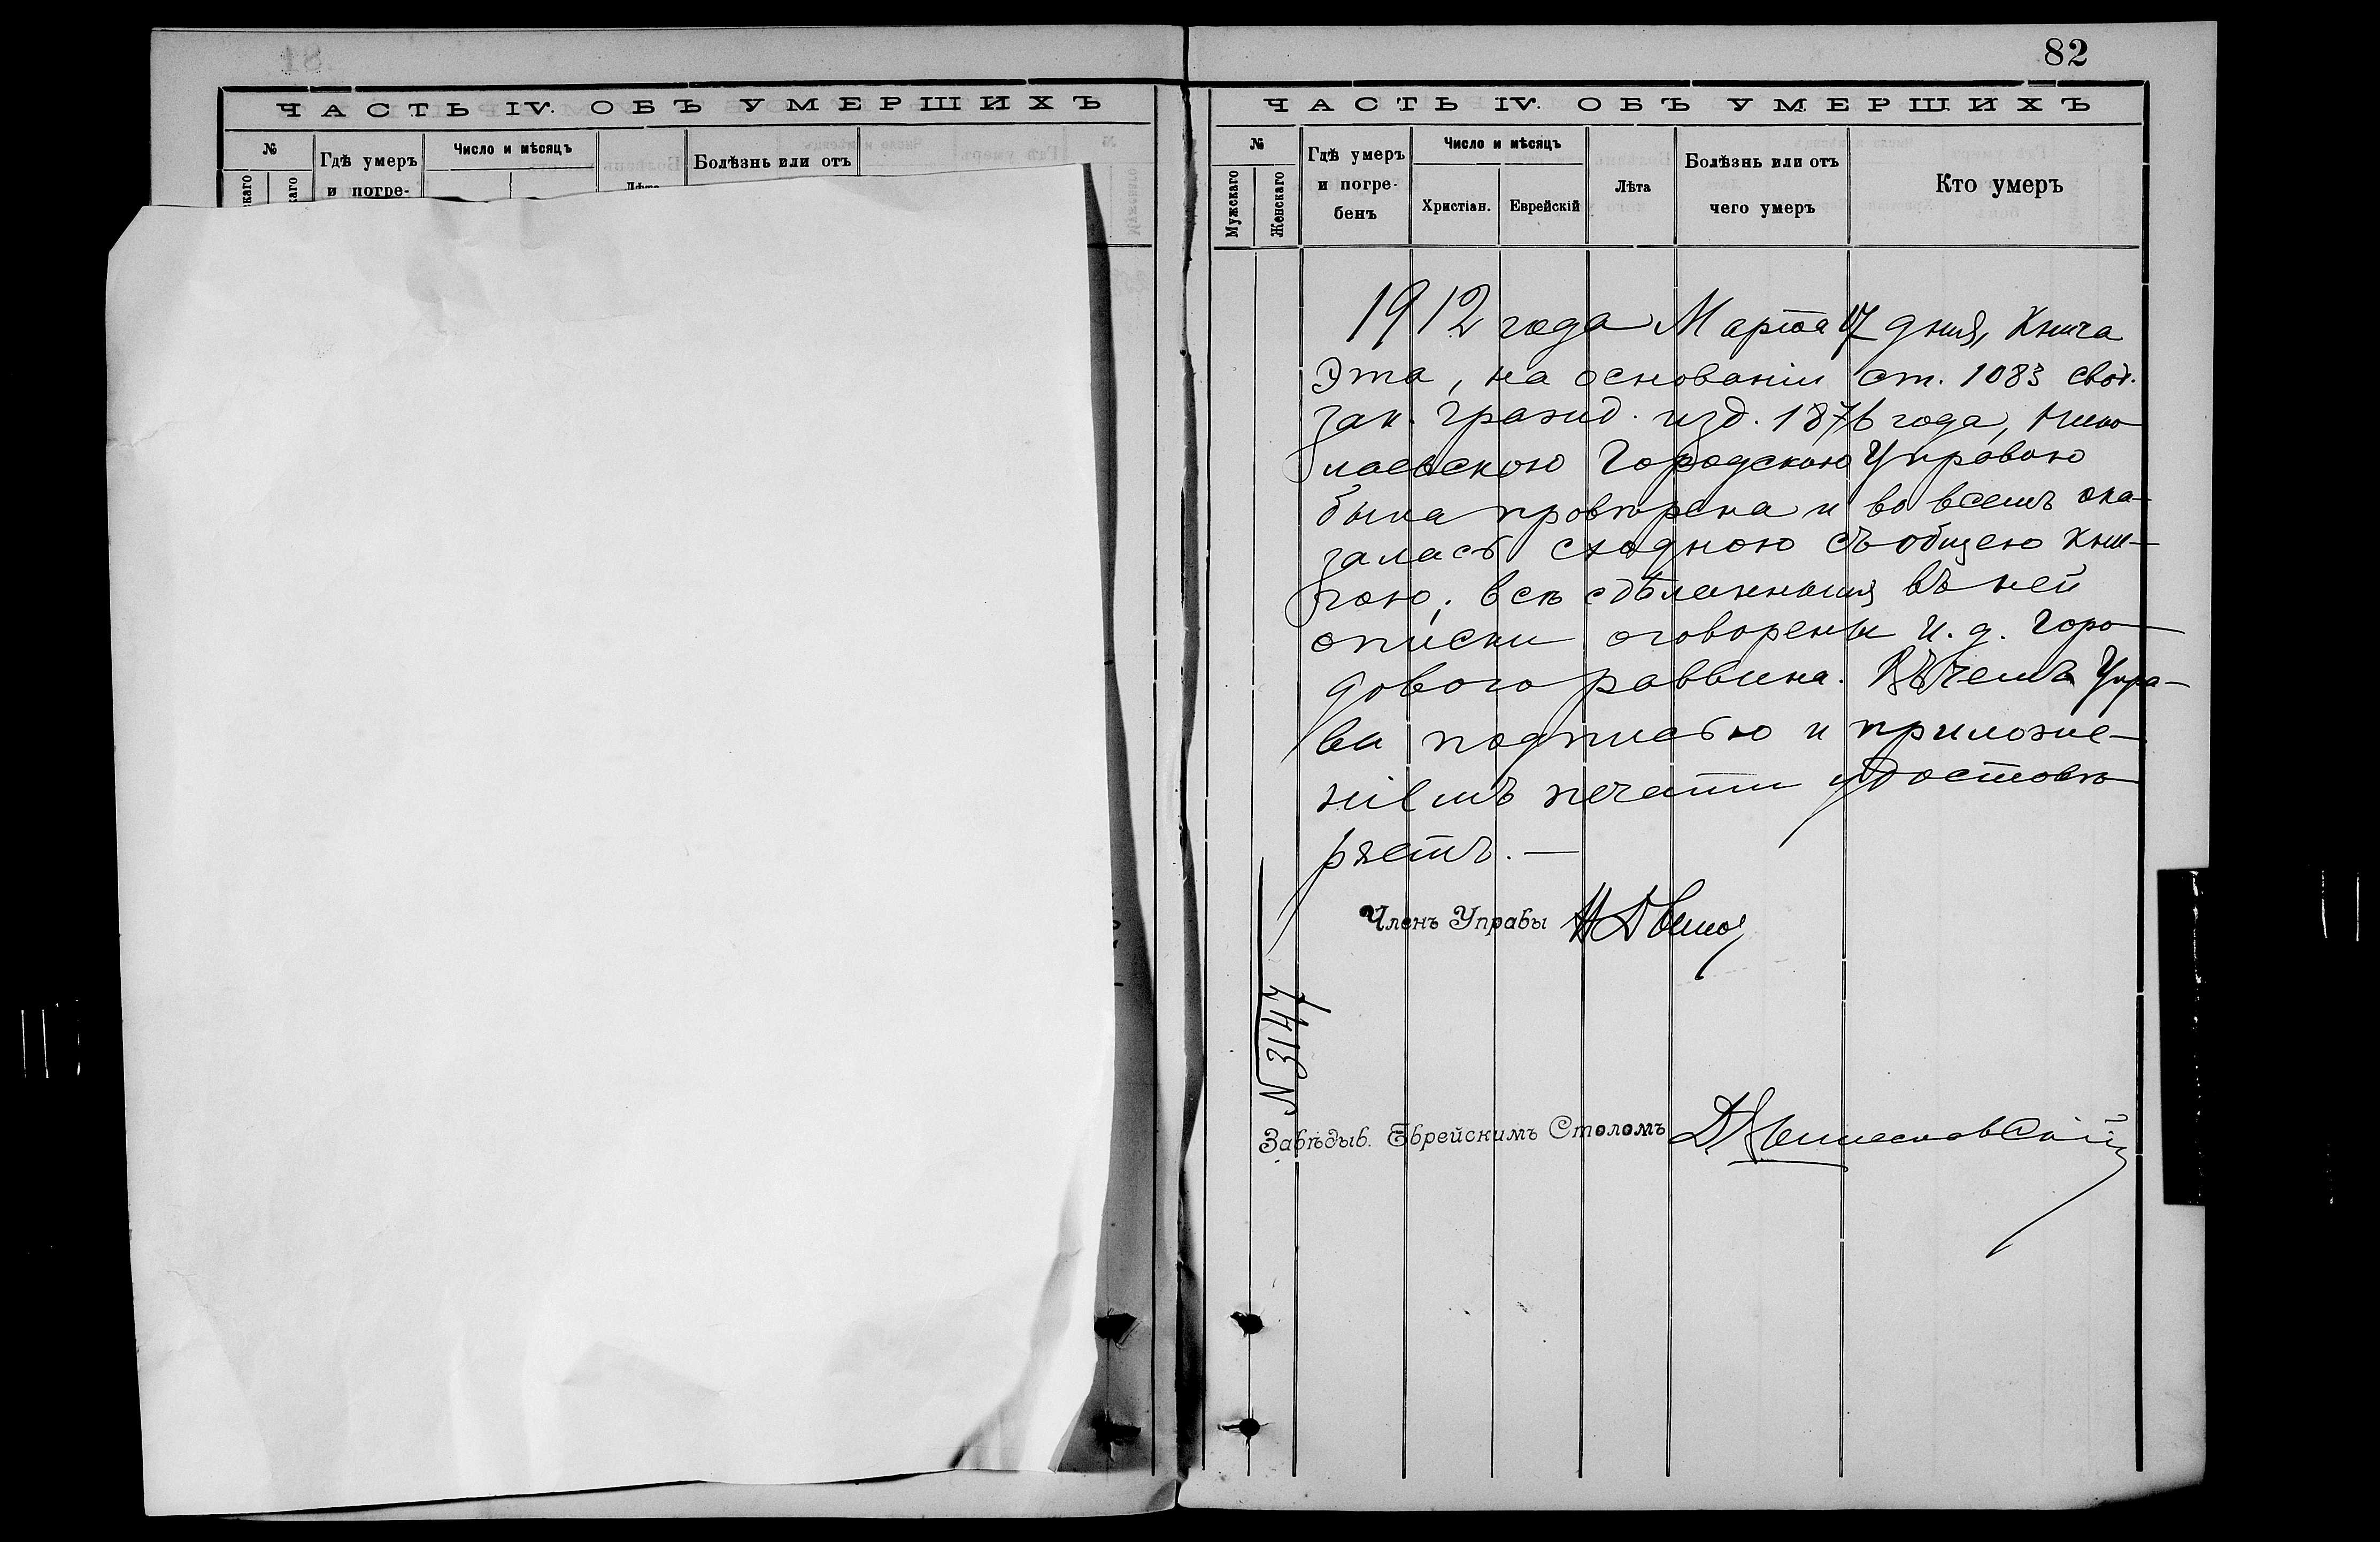 ЧАСТЬ IV. ОБЪ УМЕРШИХЪ
№
Гдѣ умеръ
и погре-
Число и мѣсяцъ
Лѣта
Болѣзнь или отъ
82
ЧАСТЬ IV. ОБЪ УМЕРШИХЪ
№
Мужскаго
Женскаго
Гдѣ умеръ
и погре-
бенъ
Число и мѣсяцъ
Христіан.
Еврейскій
Лѣта
Болѣзнь или отъ
чего умеръ
Кто умеръ
1912 года Марта 17 дня, Книга
Эта, на основаніи ст. 1083 свод.
зак. гражд. изд. 1876 года, Нико
лаевскою Городскою Управою
была провѣрена и во всемъ ока-
залась сходною съ общею кни-
гою; всѣ сдѣланныя въ ней
описки оговорены И. д. Горо-
дового раввина. Въ чемъ Упра-
ва подписью и приложе-
ніемъ печати удостовѣ
ряетъ. —
Членъ Управы
N 3147
Завѣдыв. Еврейскимъ Столомъ